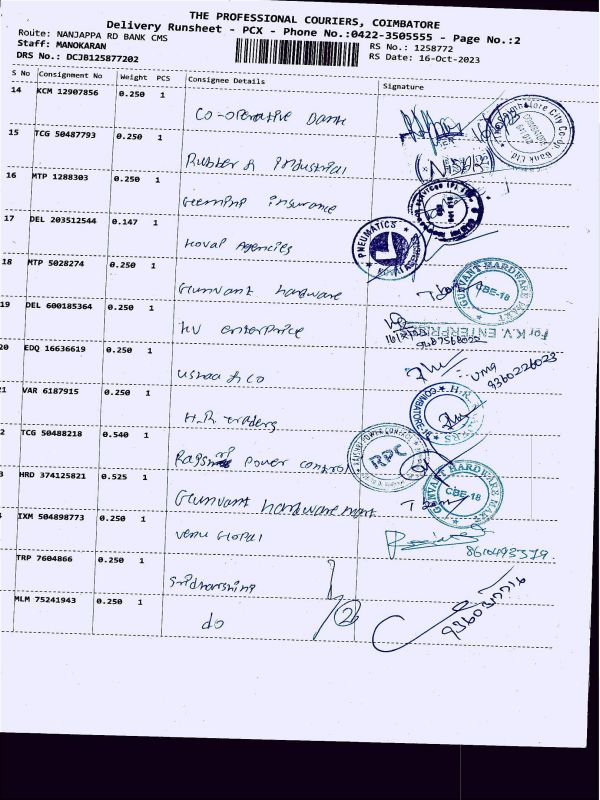 THE PROFESSIONAL COURIERS, COIMBATORE
Delivery Runsheet - PCX - Phone No.:0422-3505555 - Page No.:2
Route: NANJAPPA RD BANK CMS
RS No.: 1258772
Staff: MANOKARAN
RS Date: 16-Oct-2023
DRS No.: DCJB125877202
S No Consignment No Weight PCS Consignee Details Signature
14 KCM 12907856 0.250 1
Co-operative Bank
15 TCG 50487793 0.250 1
Rubber & industrial
16 MTP 1288303 0.250 1
insurance
17 DEL 203512544 0.147 1
PNEUMATICS
Agencies
18 MTP 5028274 0.250 1
GUNVANT HARDWARE MART
CBE-18
Gunvant hardware
19 DEL 600185364 0.250 1
For K.V. ENTERPRI
KV enterprice
9487568022
20 EDQ 16636619 0.250 1
& co
uma
9360226023
1 VAR 6187915 0.250 1
H.R.
COIMBATORE
H.R traders
2 TCG 50488218 0.540 1
RPC
power control
3 HRD 374125821 0.525 1
GUNVANT HARDWARE MART
CBE-18
Gunvant hardware mart
IXM 504898773 0.250 1
Venu Global
8610493379
TRP 7604866 0.250 1
MLM 75241943 0.250 1
do
2